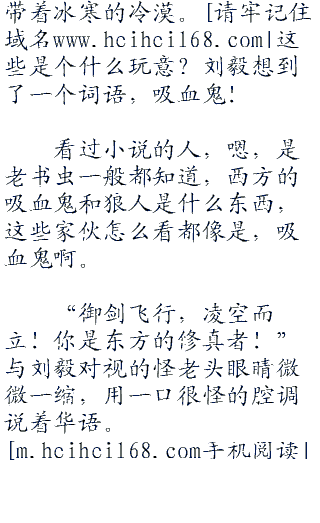 带着冰寒的冷漠。[请牢记住
域名www.hcihci168.com|这
些是个什么玩意？刘毅想到
了一个词语，吸血鬼！
看过小说的人，嗯，是
老书虫一般都知道，西方的
吸血鬼和狼人是什么东西，
这些家伙怎么看都像是，吸
血鬼啊。
“御剑飞行，凌空而
立！你是东方的修真者！”
与刘毅对视的怪老头眼睛微
微一缩，用一口很怪的腔调
说着华语。
[m.hcihci168.com手机阅读|